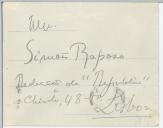 Simões Raposo
Redacção da "Republica"
Chiado, 48
Lisboa